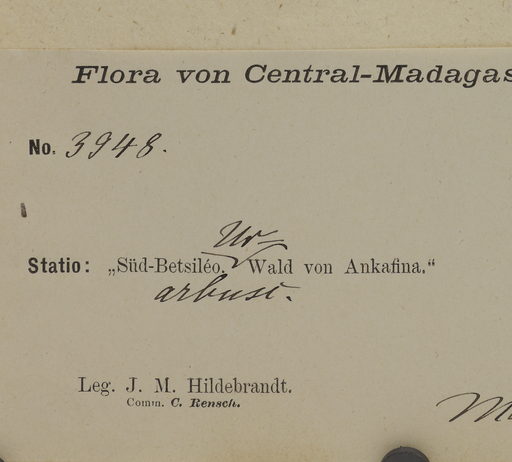 Flora von Central-Madagas
No. 3948.
Ur-
Statio: „Süd-Betsiléo. Wald von Ankafina.“
arbust.
Leg. J. M. Hildebrandt.
Comm. C. Rensch.